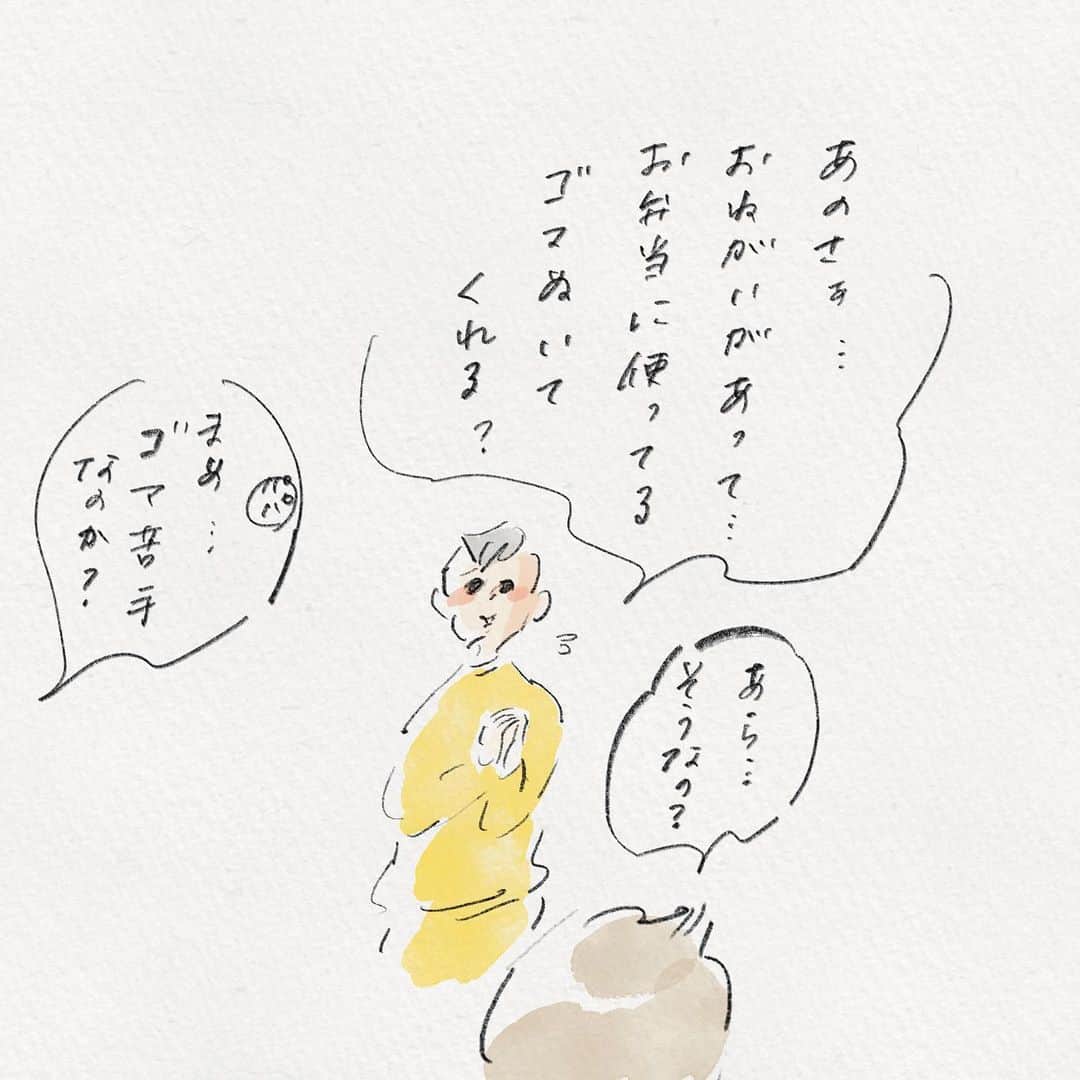 あのさぁ…
おねがいがあって…
お弁当に使ってる
ゴマぬいて
くれる？
あら…
そうなの？
パパ
まめ…
ゴマ苦手
なのか？